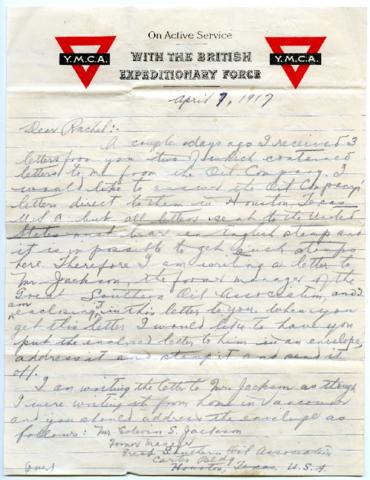 On Active Service
Y.M.C.A. WITH THE BRITISH Y.M.C.A.
EXPEDITIONARY FORCE
April 9, 1917
Dear Rachel:-
A couple days ago I received 3
letters from you two of which contained
letters to me from the Oil Company. I
would like to answer the Oil Company's
letters direct to them in Houston, Texas
U.S.A. but all letters sent to the United
States must bear an English stamp and
it is impossible to get such stamps
here. Therefore I am writing a letter to
Mr. Jackson, the former manager of the
Great Southern Oil Association, and I
am
enclosing it in this letter to you. When you
get this letter I would like to have you
put the enclosed letter to him in an envelope,
address it and stamp it and send it
off.
I am writing the letter to Mr. Jackson as though
I were writing it from home in Vancouver
and you should address the envelope as
follows: Mr. Edwin S. Jackson
Former Manager
Great Southern Oil Association
Carter Bldg.
Houston, Texas, U.S.A.
Over